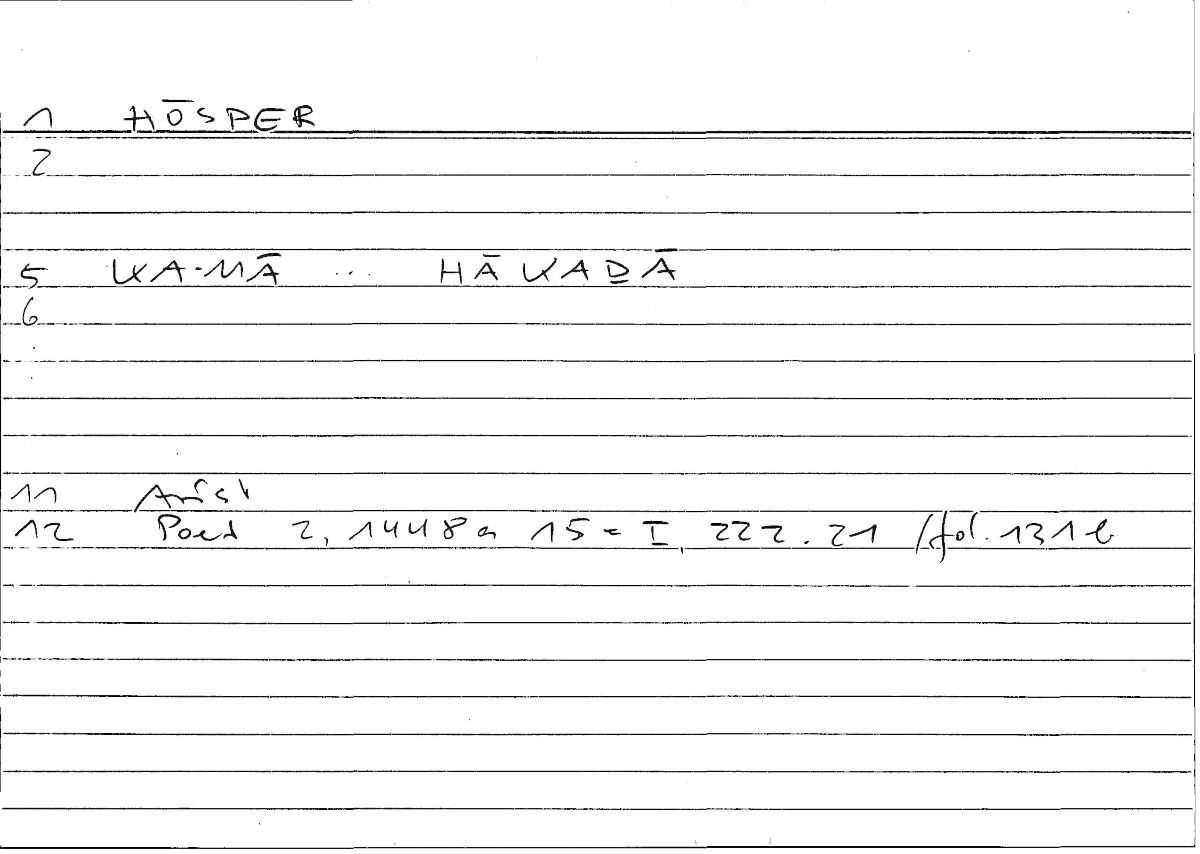 1 HŌSPER
2
5 KA-MĀ ... HĀKAḎĀ
6
11 Arist
12 Poet 2, 1448a 15 = I, 222.21 /fol. 131b